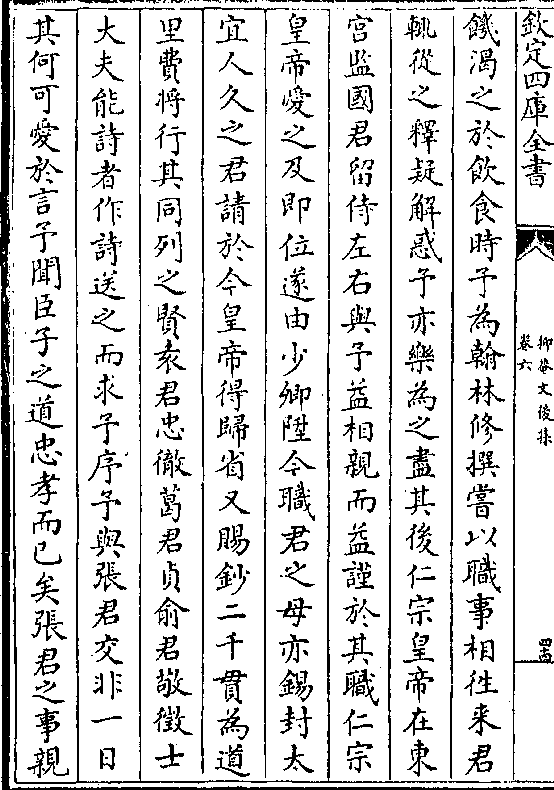 欽定四庫全書
抑菴文後集
卷六
四
饑渴之於飲食時予為翰林修撰嘗以職事相徃来君
輒從之釋疑解惑予亦樂為之盡其後仁宗皇帝在東
宫监國君留侍左右與予益相親而益謹於其職仁宗
皇帝愛之及即位遂由少卿陞今職君之母亦錫封太
宜人久之君請於今皇帝得歸省又賜鈔二千貫為道
里費将行其同列之賢袁君忠徹葛君貞俞君敬徵士
大夫能詩者作詩送之而求予序予與張君交非一日
其何可愛於言予聞臣子之道忠孝而已矣張君之事親